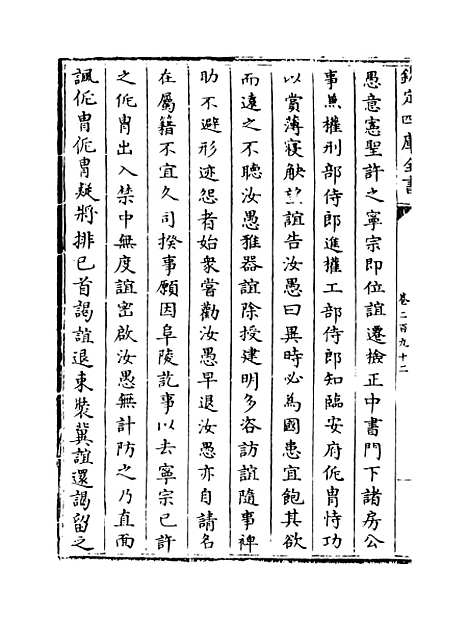 欽定四庫全書
卷二百九十二
愚意憲聖許之寧宗即位誼遷檢正中書門下諸房公
事兼權刑部侍郎進權工部侍郎知臨安府侂胄恃功
以賞薄寖觖望誼告汝愚曰異時必為國患宜飽其欲
而遠之不聽汝愚雅器誼除授建明多咨訪誼隨事裨
助不避形迹怨者始衆嘗勸汝愚早退汝愚亦自請名
在屬籍不宜久司揆事願因阜陵訖事以去寧宗已許
之侂胄出入禁中無度誼密啟汝愚無計防之乃直面
諷侂胄侂胄疑將排已首謁誼退束裝冀誼還謁留之